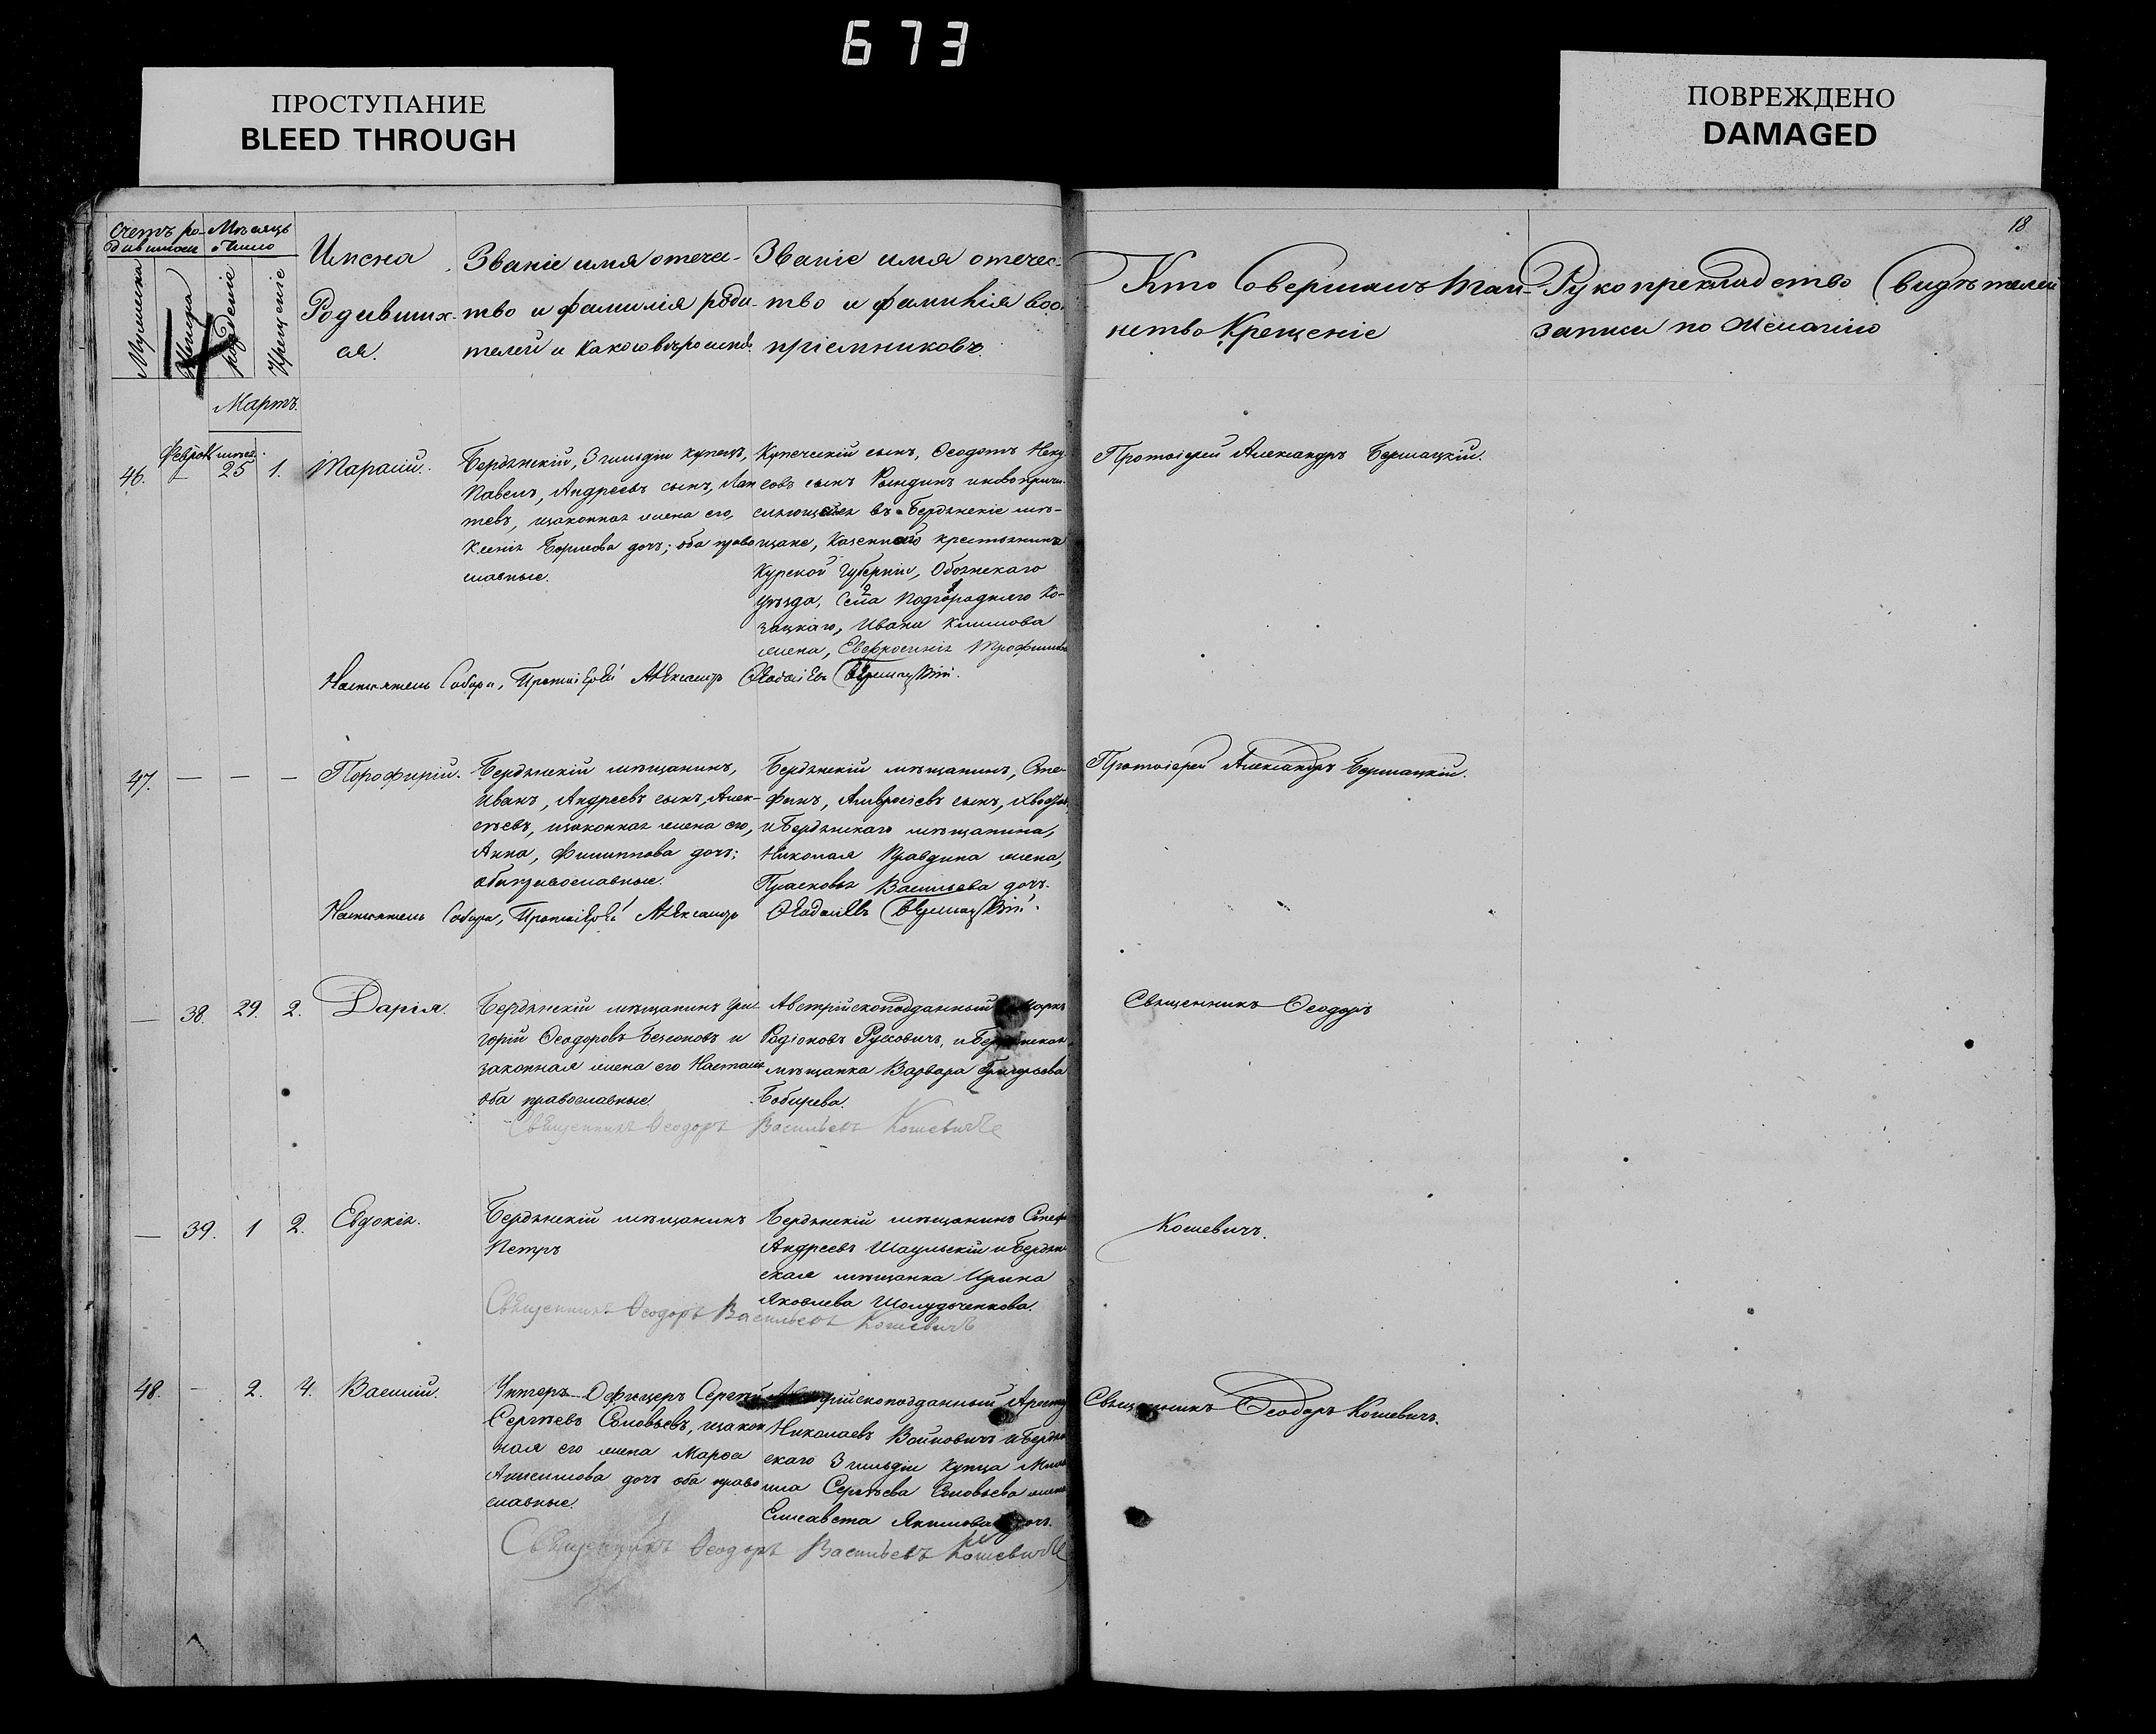 673
ПРОСТУПАНИЕ
BLEED THROUGH
ПОВРЕЖДЕНО
DAMAGED
18
Счетъ ро-
дившихся
Мѣсяцъ
и Число
Мужеска
Женска
рожденіе
Крещеніе
Имена
Родивших-
ся.
Званіе имя отече-
ство и фамилія роди-
телей и какого вѣроисповѣ.
Званіе имя отечес-
тво и фамилія вос-
пріемниковъ.
Кто Совершалъ таи-
нство Крещеніе
Рукоприкладство свидѣтелей
записи по желанію
Мартъ.
46.
25
1.
Тарасій.
Бердянскій, 3 гильдіи купецъ,
Павелъ, Андреевъ сынъ, Лап
тевъ, изаконная жена его,
Ксенія Борисова дочь; оба право
славные.
Купеческій сынъ, Ѳеодотъ
совъ сынъ
въ Бердянскіе мѣ-
щане, Казеннаго крестьянина
Курской Губерніи, Обоянскаго
уѣзда, Села Подгороднего Ко-
зацкаго, Ивана Климова
жена, Евфросинія Трофимова
Протоіерей Александръ Бершацкій.
Настоятель Собора, Протоіерей Александръ
47.
—
—
—
Порофирій.
Бердянскій мѣщанинъ,
Иванъ, Андреевъ сынъ, Алек-
сѣевъ, изаконная жена его,
Анна, Филиппова дочь;
оба православные.
Бердянскій мѣщанинъ, Сте-
фанъ, Амвросіевъ сынъ,
и Бердянскаго мѣщанина,
Николая Правдина жена,
Прасковья Васильева дочь.
Протоіерей Александръ Бершацкій.
Настоятель Собора, Протоіерей Александръ
—
38.
29.
2.
Дарія.
Бердянскій мѣщанинъ Гри
горій Ѳеодоровъ и
законная жена его
оба православные.
Австрійскоподданный Марко
Радіоновъ и
мѣщанка Варвара Григорьева
Бобирева.
Священникъ Ѳеодоръ
Священникъ Ѳеодоръ Васильевъ Кошевичъ
—
39.
1
2.
Евдокія.
Бердянскій мѣщанинъ
Петръ
Бердянскій мѣщанинъ
Андреевъ Шаульскій и Бердян
ская мѣщанка Ирина
Яковлева Шолудченкова.
Кошевичъ.
Священникъ Ѳеодоръ Васильевъ Кошевичъ
48.
—
2.
4.
Василій.
Унтеръ-Офицеръ Сергѣй
Сергѣевъ Соловьевъ, изакон
ная его жена Марѳа
Анисимова дочь оба право
славные.
Николаевъ Войновичъ и Бердян
скаго 3 гильдіи купца
Сергѣева Соловьева жена
Елисавета Якимова дочь.
Священникъ Ѳеодоръ Кошевичъ.
Священникъ Ѳеодоръ Васильевъ Кошевичъ